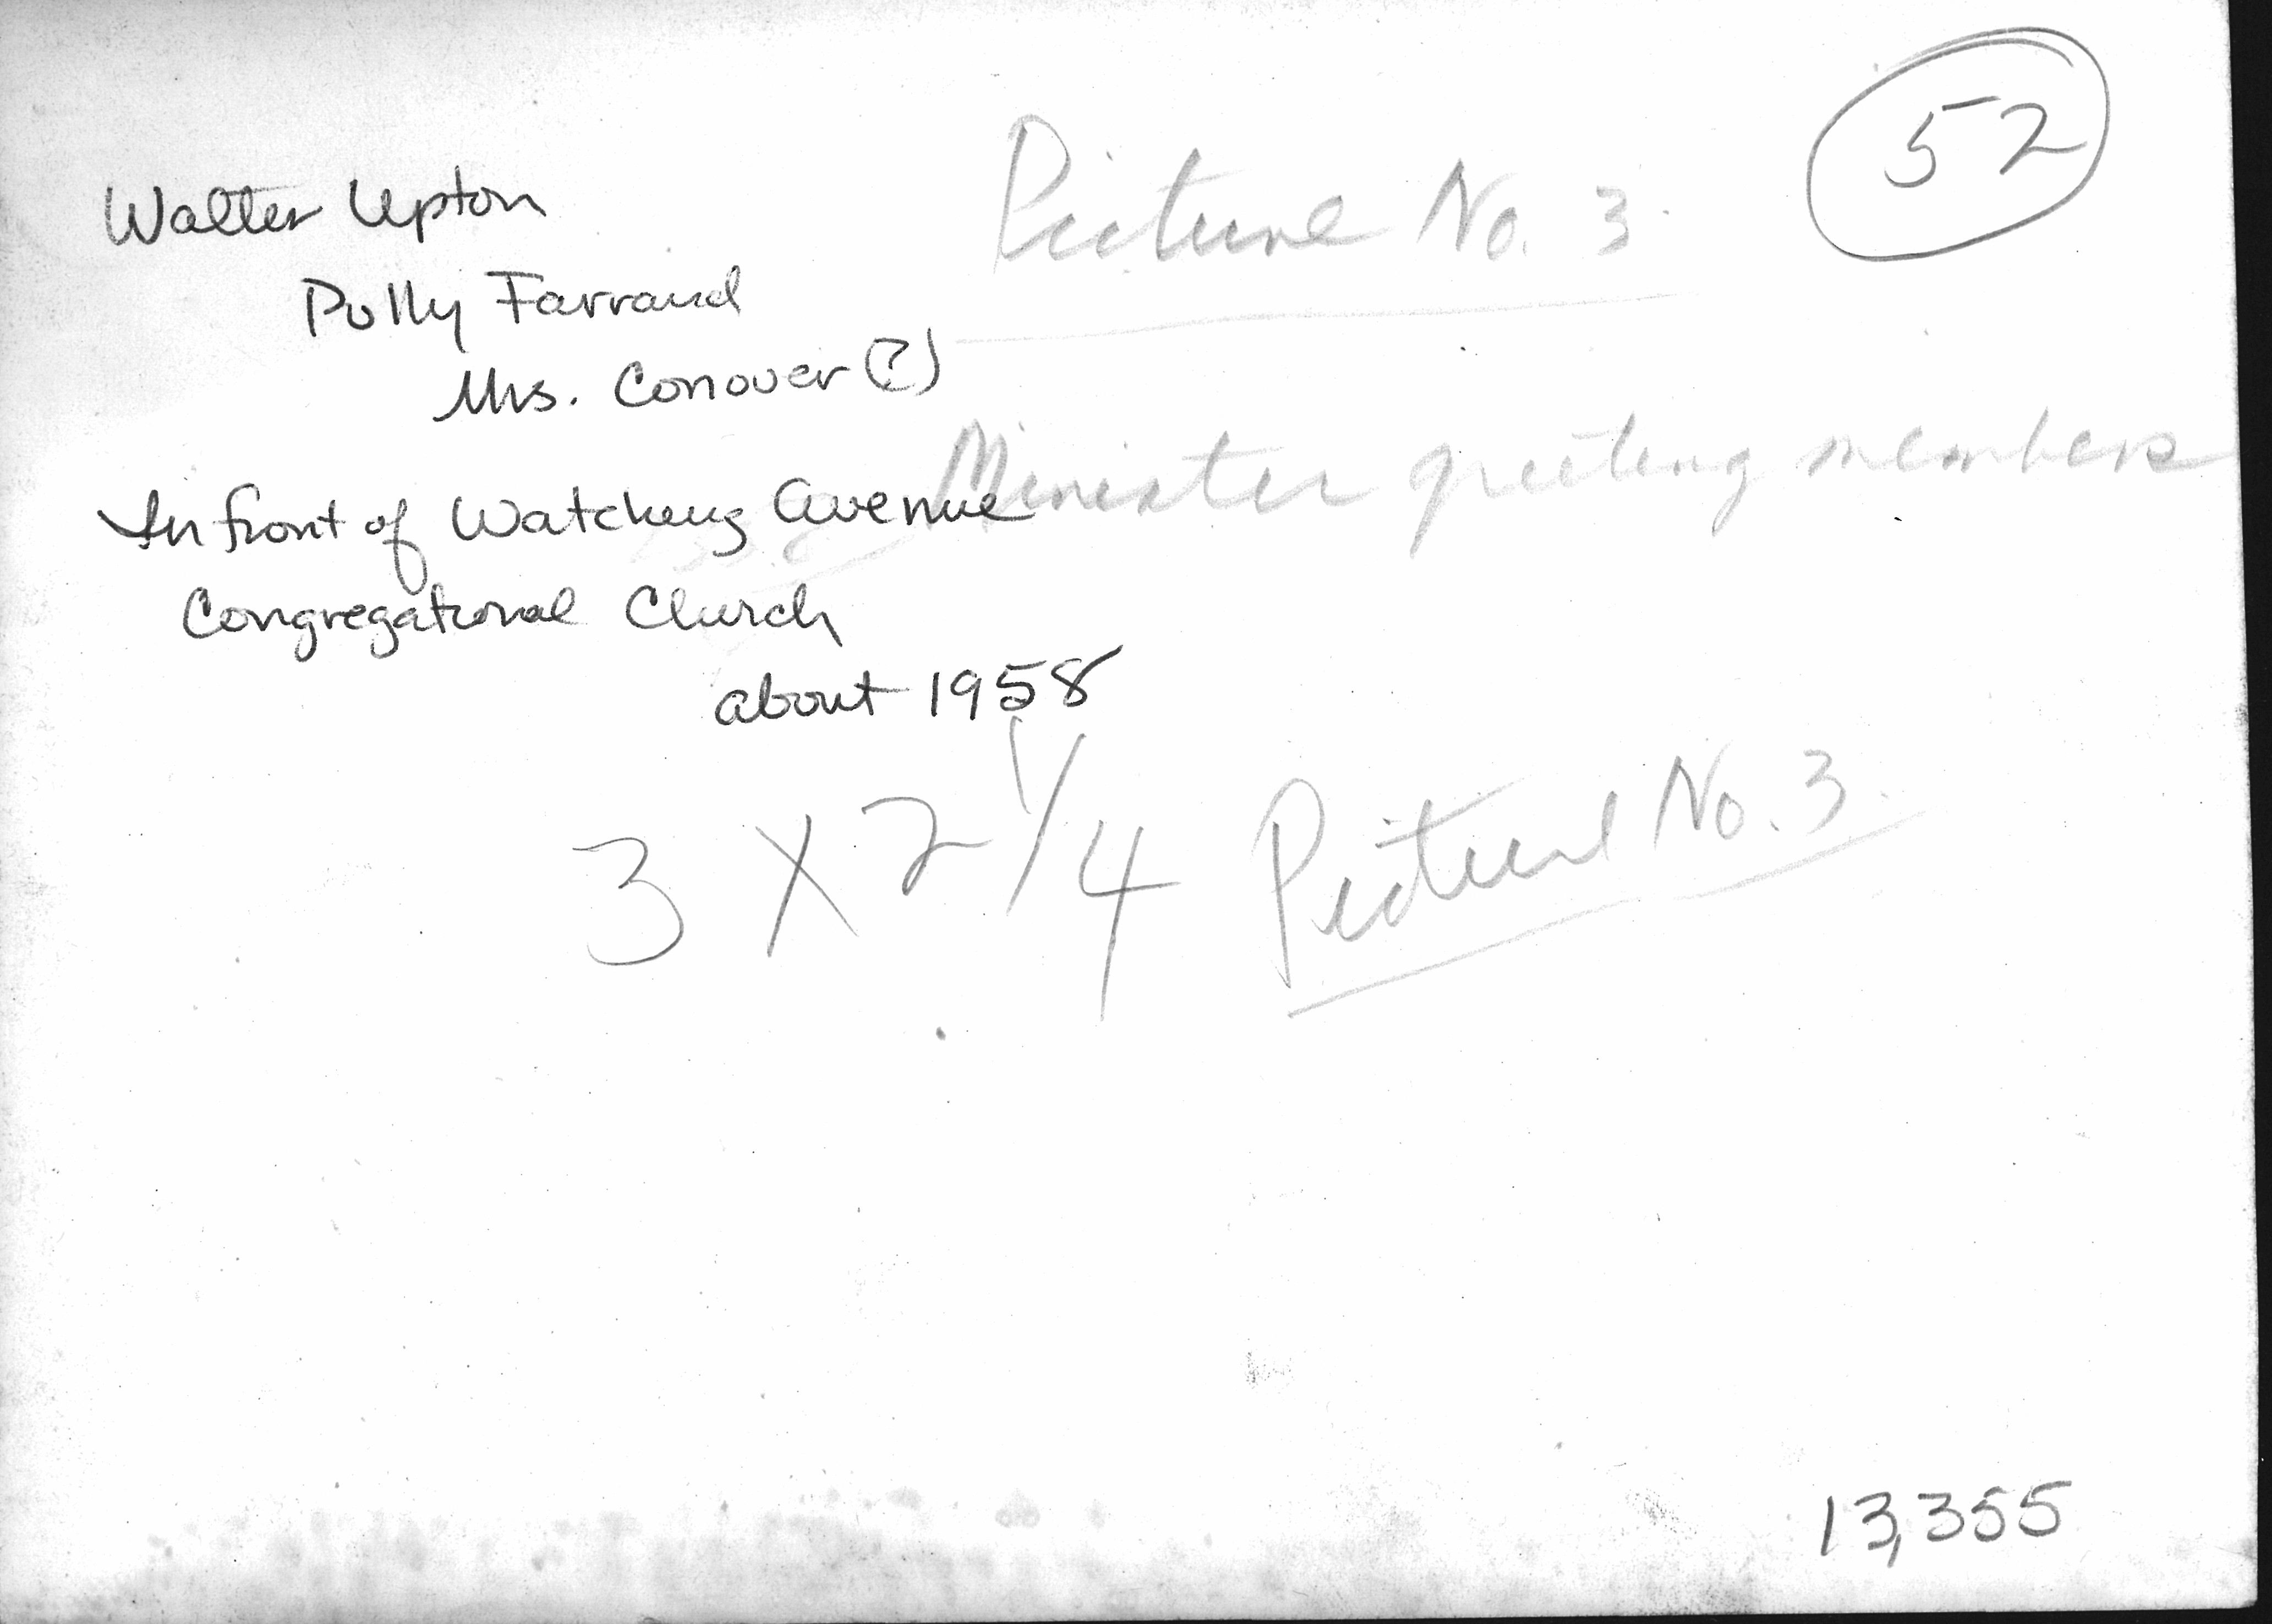 52
Picture No. 3
Walter Upton
Polly Farrand
Mrs. Conover (?)
Minister greeting members
In front of Watchung Avenue
Congregational Church
about 1958
3 X 2 1/4
Picture No. 3
13,355